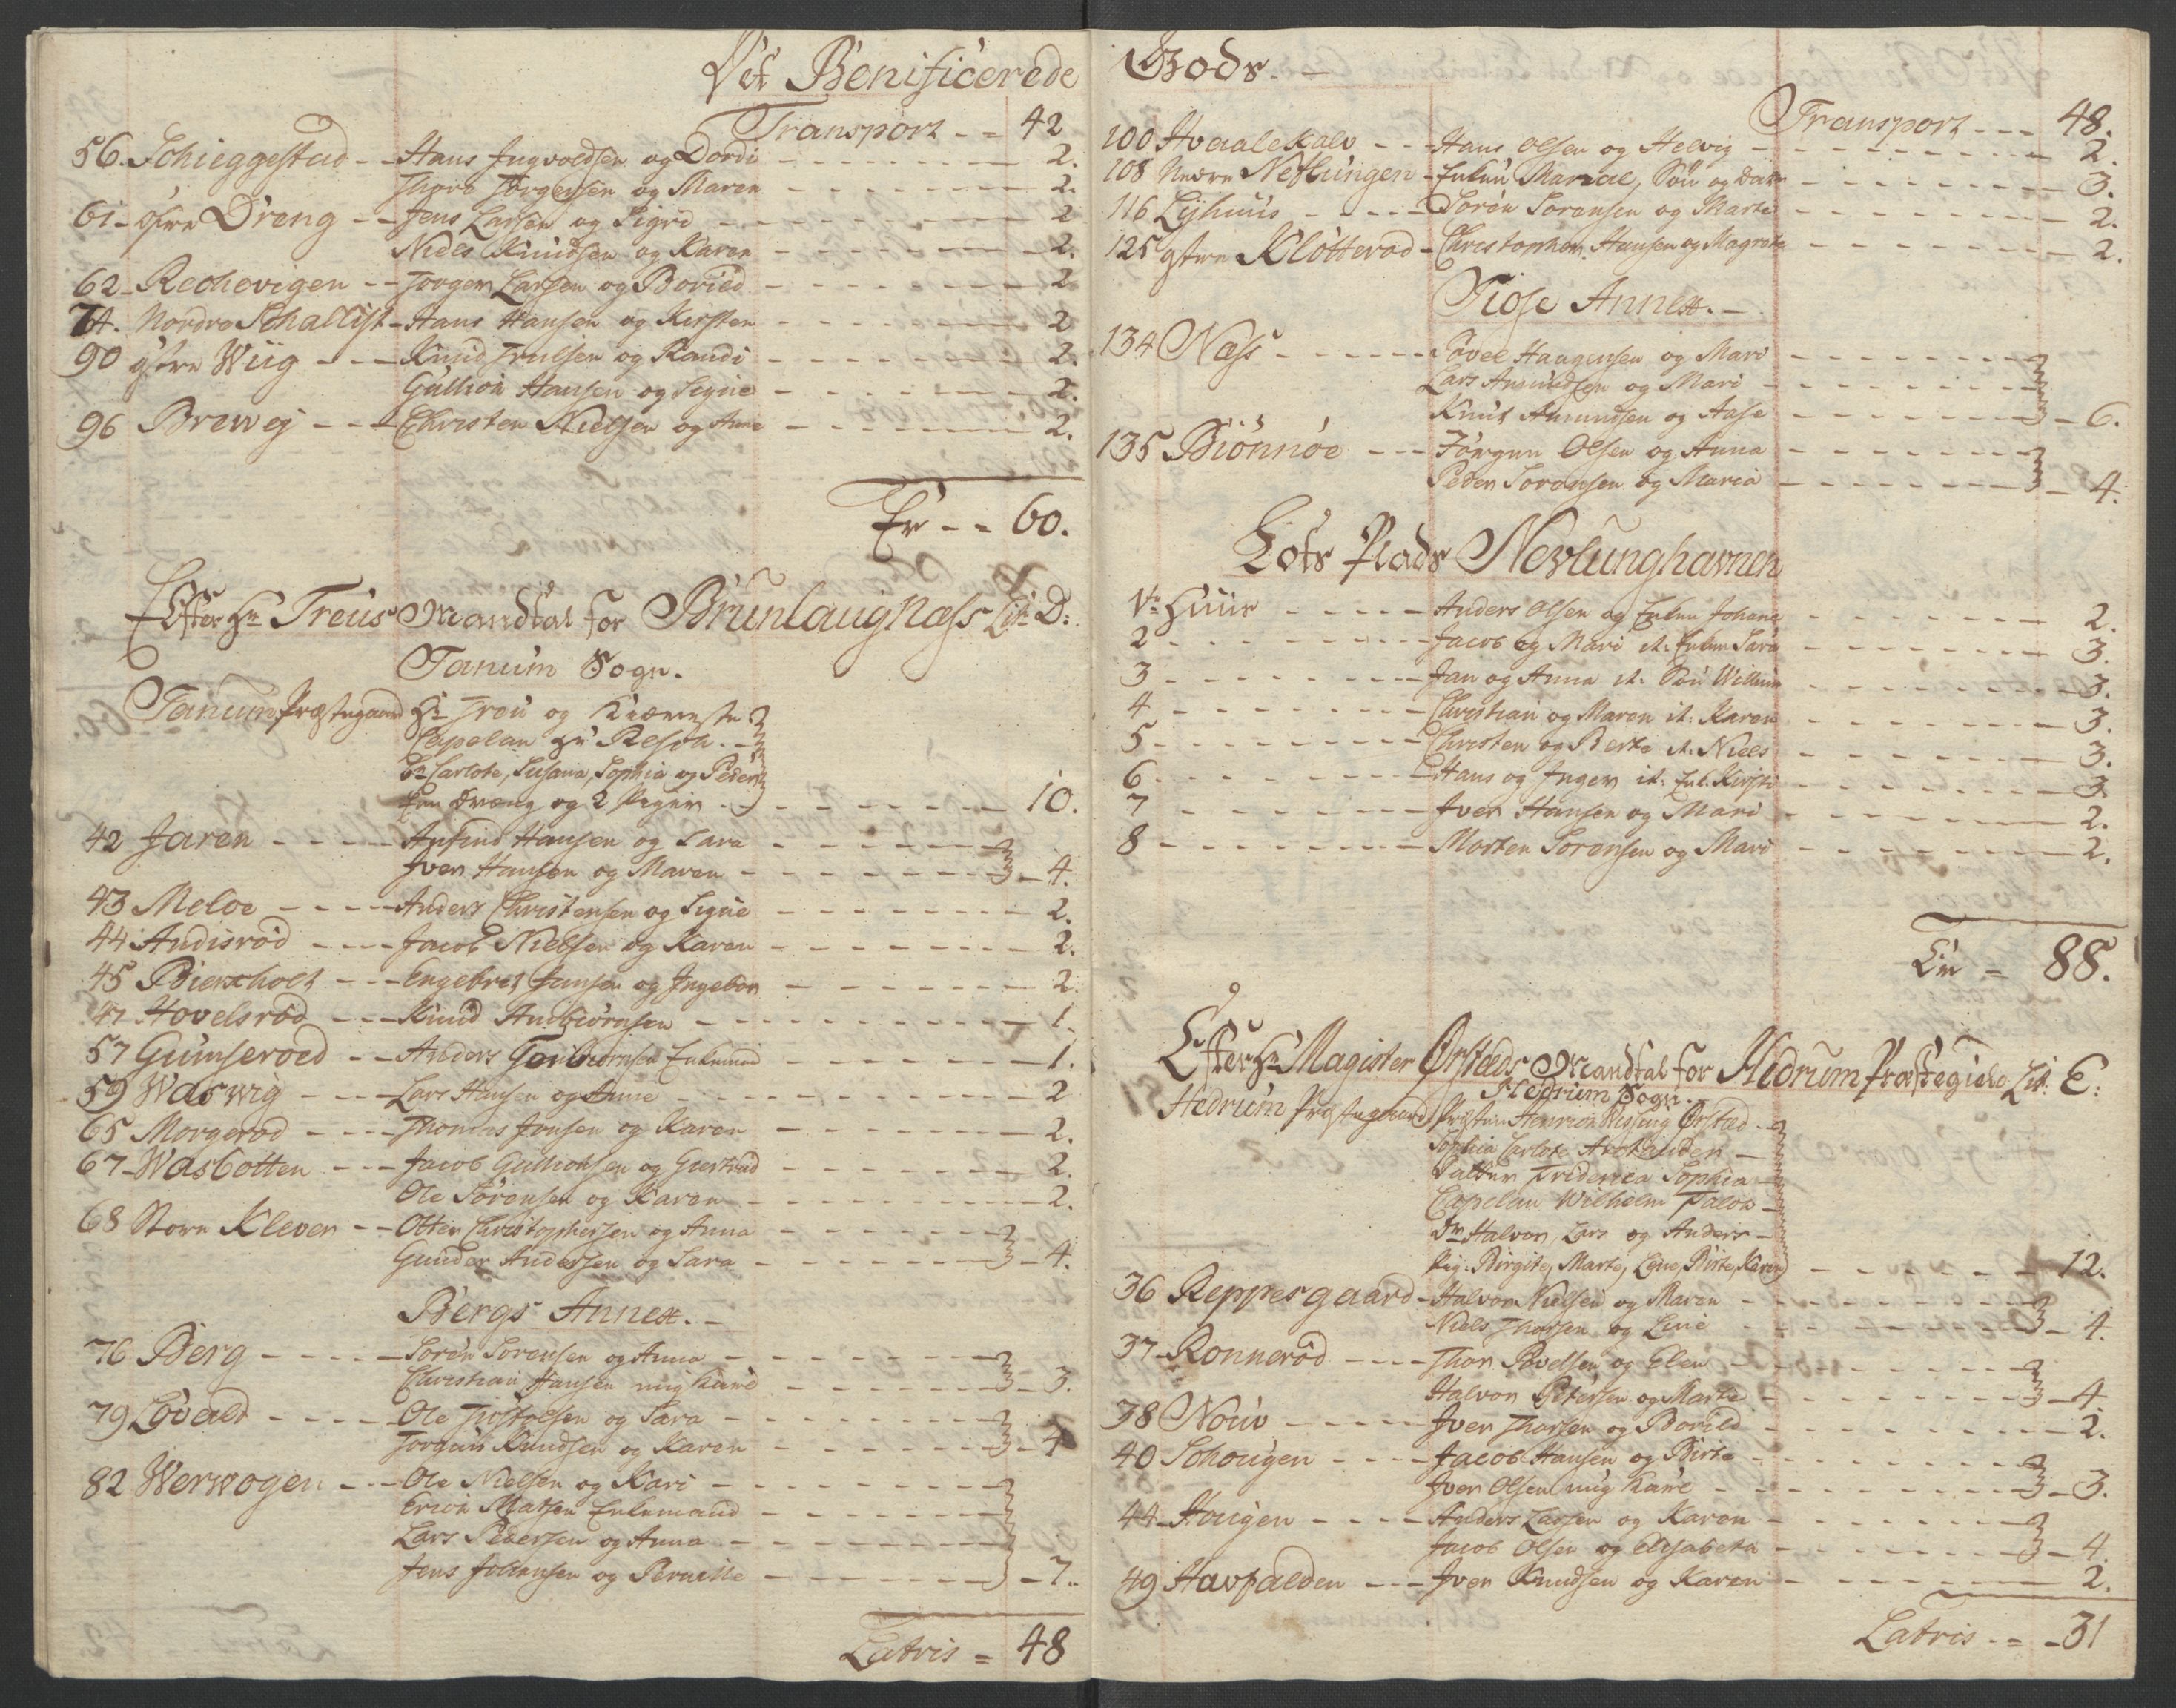 Det Benificerede
Transport - - 42
56. Schieggestad - - Hans Ingvoldsen og Dordi - - - 2.
Thore Jørgensen og Maren - - - 2.
61 - Øfre Dreng - - Jens Larsen og Sigri - - - 2
Niels Knudsen og Karen - - - 2.
62 - Rechevigen - - Jørgen Larsen og Boried - - - 2
74. Nordre Schallist - Hans Hansen og Kirsten - - - 2
90 ytre Wiig - - - Knud Truelsen og Randi - - - 2.
Gullich Hansen og Signe - - - 2.
96 Brewej - - - Christen Nielsen og Anne - - - 2.
Er - - 60.
Efter Hr Treus Mandtal for Brunlaugnæss Lit: D:
Tanum Sogn.
Tanum Præstegaard Hr Treu og Kiæreste
Capelan Hr
Carlote, Susana, Sophia og Peder
Een Dræng og 2 Piger - - - 10.
42 Jaren - - - Anfind Hansen og Sara
Iver Hansen og Maren - - - 4.
43 Meloe - - - Anders Christensen og Signe - - - 2.
44 Andisrød - - - Jacob Nielsen og Karen - - - 2.
45 Bierscholt - - - Engebret Jansen og Ingebor - - - 2.
47 Hovelsrød - - - Knud Anbiørnsen - - - 1.
57 Gumserøed - - Anders Torbiørnsen Enkemand - - - 1.
59 Waswig - - - Lars Hansen og Anne - - - 2
65 Morgerød - - - Thomas Jonsen og Karen - - - 2.
67 - Wasbotten - - - Jacob Gullichsen og Giertrud - - - 2.
Ole Sørensen og Karen - - - 2.
68 Store Klever - - Otter Christophersen og Anna
Gunder Andersen og Sara - - - 4.
Bergs Annex. -
76 Berg - - - Sørøn Sørensen og Anna
Christian Hansen ung Karl - - - 3.
79 Løvald - - - Ole Tiostolsen og Sara
Jorgen Knudsen og Karen - - - 4
82 Werwogen - - - Ole Nielsen og Kari
Erich Matsen Enkemand
Lars Pedersen og Anna
Jens Johansen og Pernille - - - 7.
Latris = 48
Gods. -
Transport - - - 48.
100 Hvaalekalv - - - Hans Olsen og Helvig - - - 2.
108 Nedre Neflungen - Enken Marcal, Søn og Dater - - - 3.
116 Lyhuus - - - Sørøn Sørensen og Marte - - - 2.
125 ytre Kløtterød - Christopher Hansen og Magrete - - - 2.
Tiose Annex. -
134 Næss - - - Povel Haagensen og Mari
Lars Amundsen og Mari
Knut Amundsen og Aase - - - 6.
135 Biønnøe - - - Jørgen Olsen og Anna
Peder Sørensen og Maria - - - 4.
Lots Plads Nevlunghavnen
1te Huus - - - Anders Olsen og Enken Johane - - - 2.
2 - - - Jacob og Mari it: Enken Sara - - - 3.
3 - - - Jan og Anna it: Søn Willum - - - 3.
4 - - - Christian og Maren it: Karen - - - 3.
5 - - - Christen og Berte it: Niels - - - 3.
6 - - - Hans og Inger it: Enk: Kirsti - - - 3.
7 - - - Iver Hansen og Mari - - - 2.
8 - - - Morten Sørensen og Mari - - - 2.
Er = 88.
Efter Hr Magister Ørsteds Mandtal for Hedrum Præstegield Lit. E:
Hedrum Sogn.
Hedrum Præstegaard Præsten Henrich Wissing Ørsted
Sophia Carlote Archander
Datter Friderica Sophia
Capelan Wilhelm Falck
Dr. Halvor, Lars og Anders
Pig: Birgite, Marte, Lene, Birte, Karen - - - 12.
36 Reppesgaard - Halvor Nielsen og Maren
Niels Thorsen og Line - - - 4.
37 - Ronnerød - - - Thor Povelsen og Elen
Halvor Petersen og Marte - - - 4.
38 Nouv - - - Iver Thorsen og Borild - - - 2.
40 Schougen - - - Jacob Hansen og Birte
Iver Olsen ung Karl - - - 3.
44 - Hougen - - - Anders Larsen og Karen
Jacob Olsen og Elisabeta - - - 4.
49 Havfalden - - - Iver Knudsen og Karen - - - 2.
Latris - = - 31